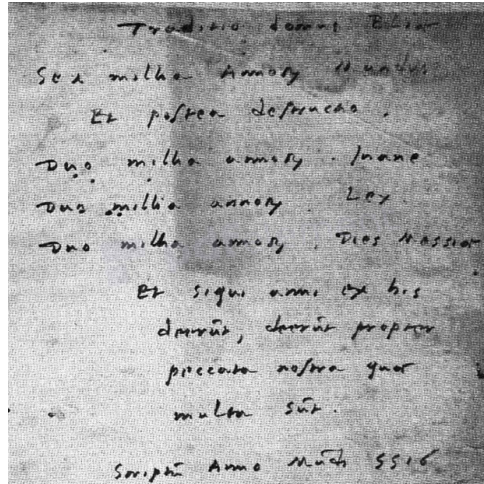 Traditio domus Eliae
Sex milia Annorꝝ Mundus
Et postea destructio.
Duo milia annorꝝ. Inane
Duo milia annorꝝ. Lex.
Duo milia annorꝝ. Dies Messiae
Et si qui anni ex his
deerūt, deerūt propter
peccata nostra quae
multa sūt.
Scriptū Anno Mūdi 5516